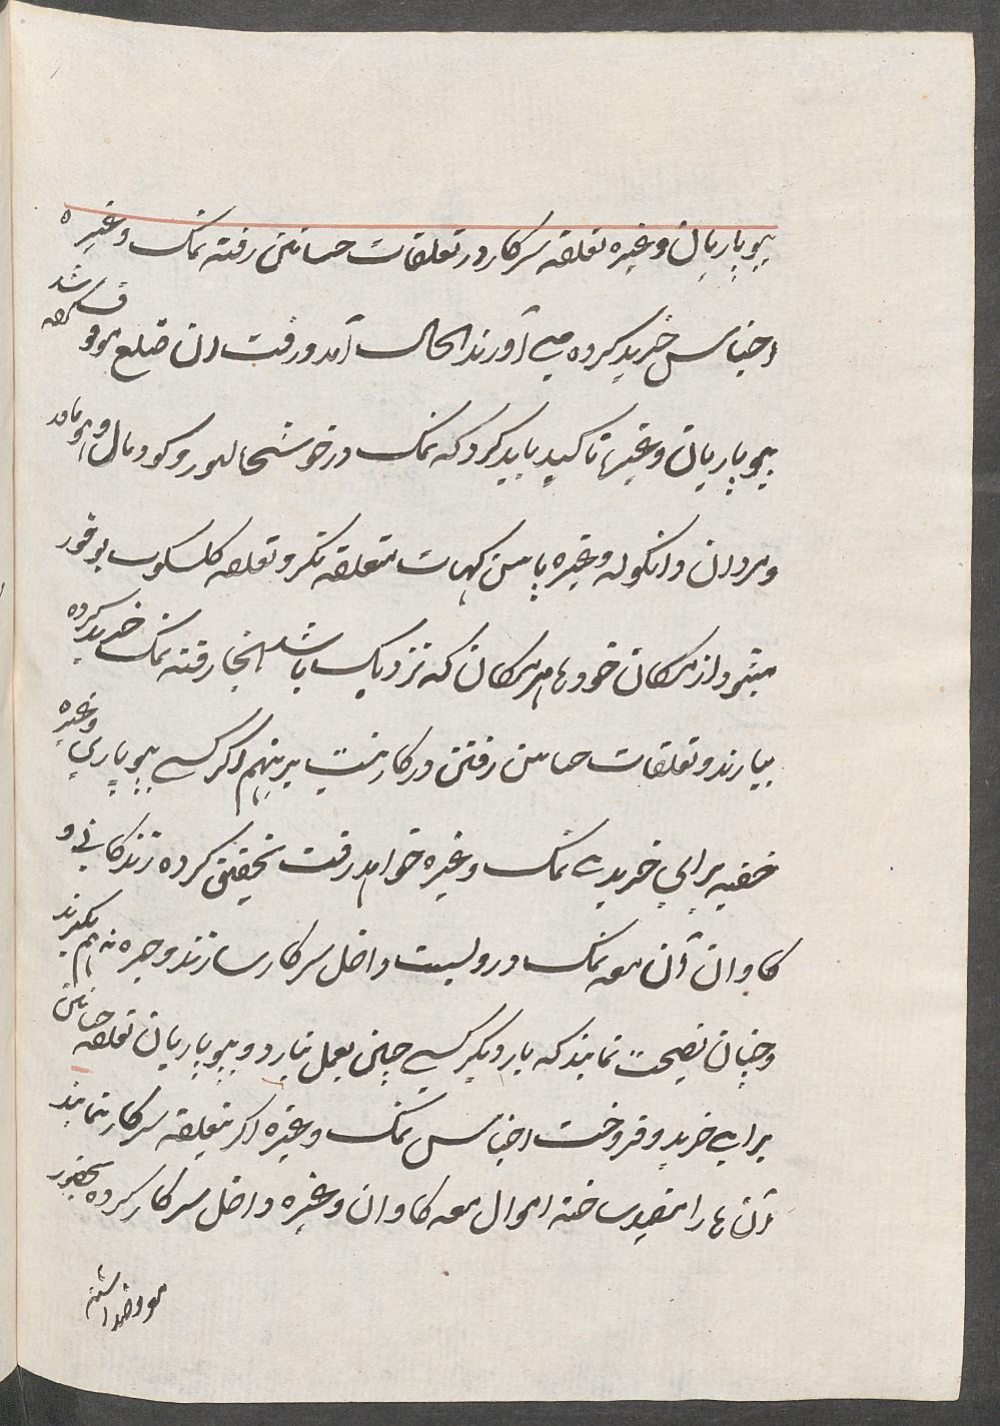 بیوپاریان وغیره تعلقه سرکار در تعلقات حسانتن رفته نمک وغیره
اجناس خرید کرده می آورند الحال آمد و رفت ان ضلع موقوف شد
بیوپاریان وغیرها تاکید باید کرد که نمک در خوشحالپور و کودیال و
و مردان و انکوله وغیره پاسن کهات متعلقه نکر و تعلقه کلسکوب بوفور
میشود از مکان خود ها هر مکان که نزدیک باشد انجا رفته نمک خرید کرده
بیارند و تعلقات حسانتن رفتن درکار نیست برینهم اکر کسی بیوپاری وغیره
خفیه برای خریدی نمک وغیره خواهد رفت تحقیق کرده زندکانی و
کاوان آن معه نمک دروبست داخل سرکار سازند و جرمانه هم بکیرند
و چنان نصیحت نمایند که بار دیکر کسی چنین بعمل نیارد و بیوپاریان تعلقه حسانتن
برای خرید و فروخت اجناس نمک وغیره اکر بتعلقه سرکار نمایند
آن ها را مقید ساخته اموال معه کاوان وغیره داخل سرکار کرده بحضور
معروضداشته